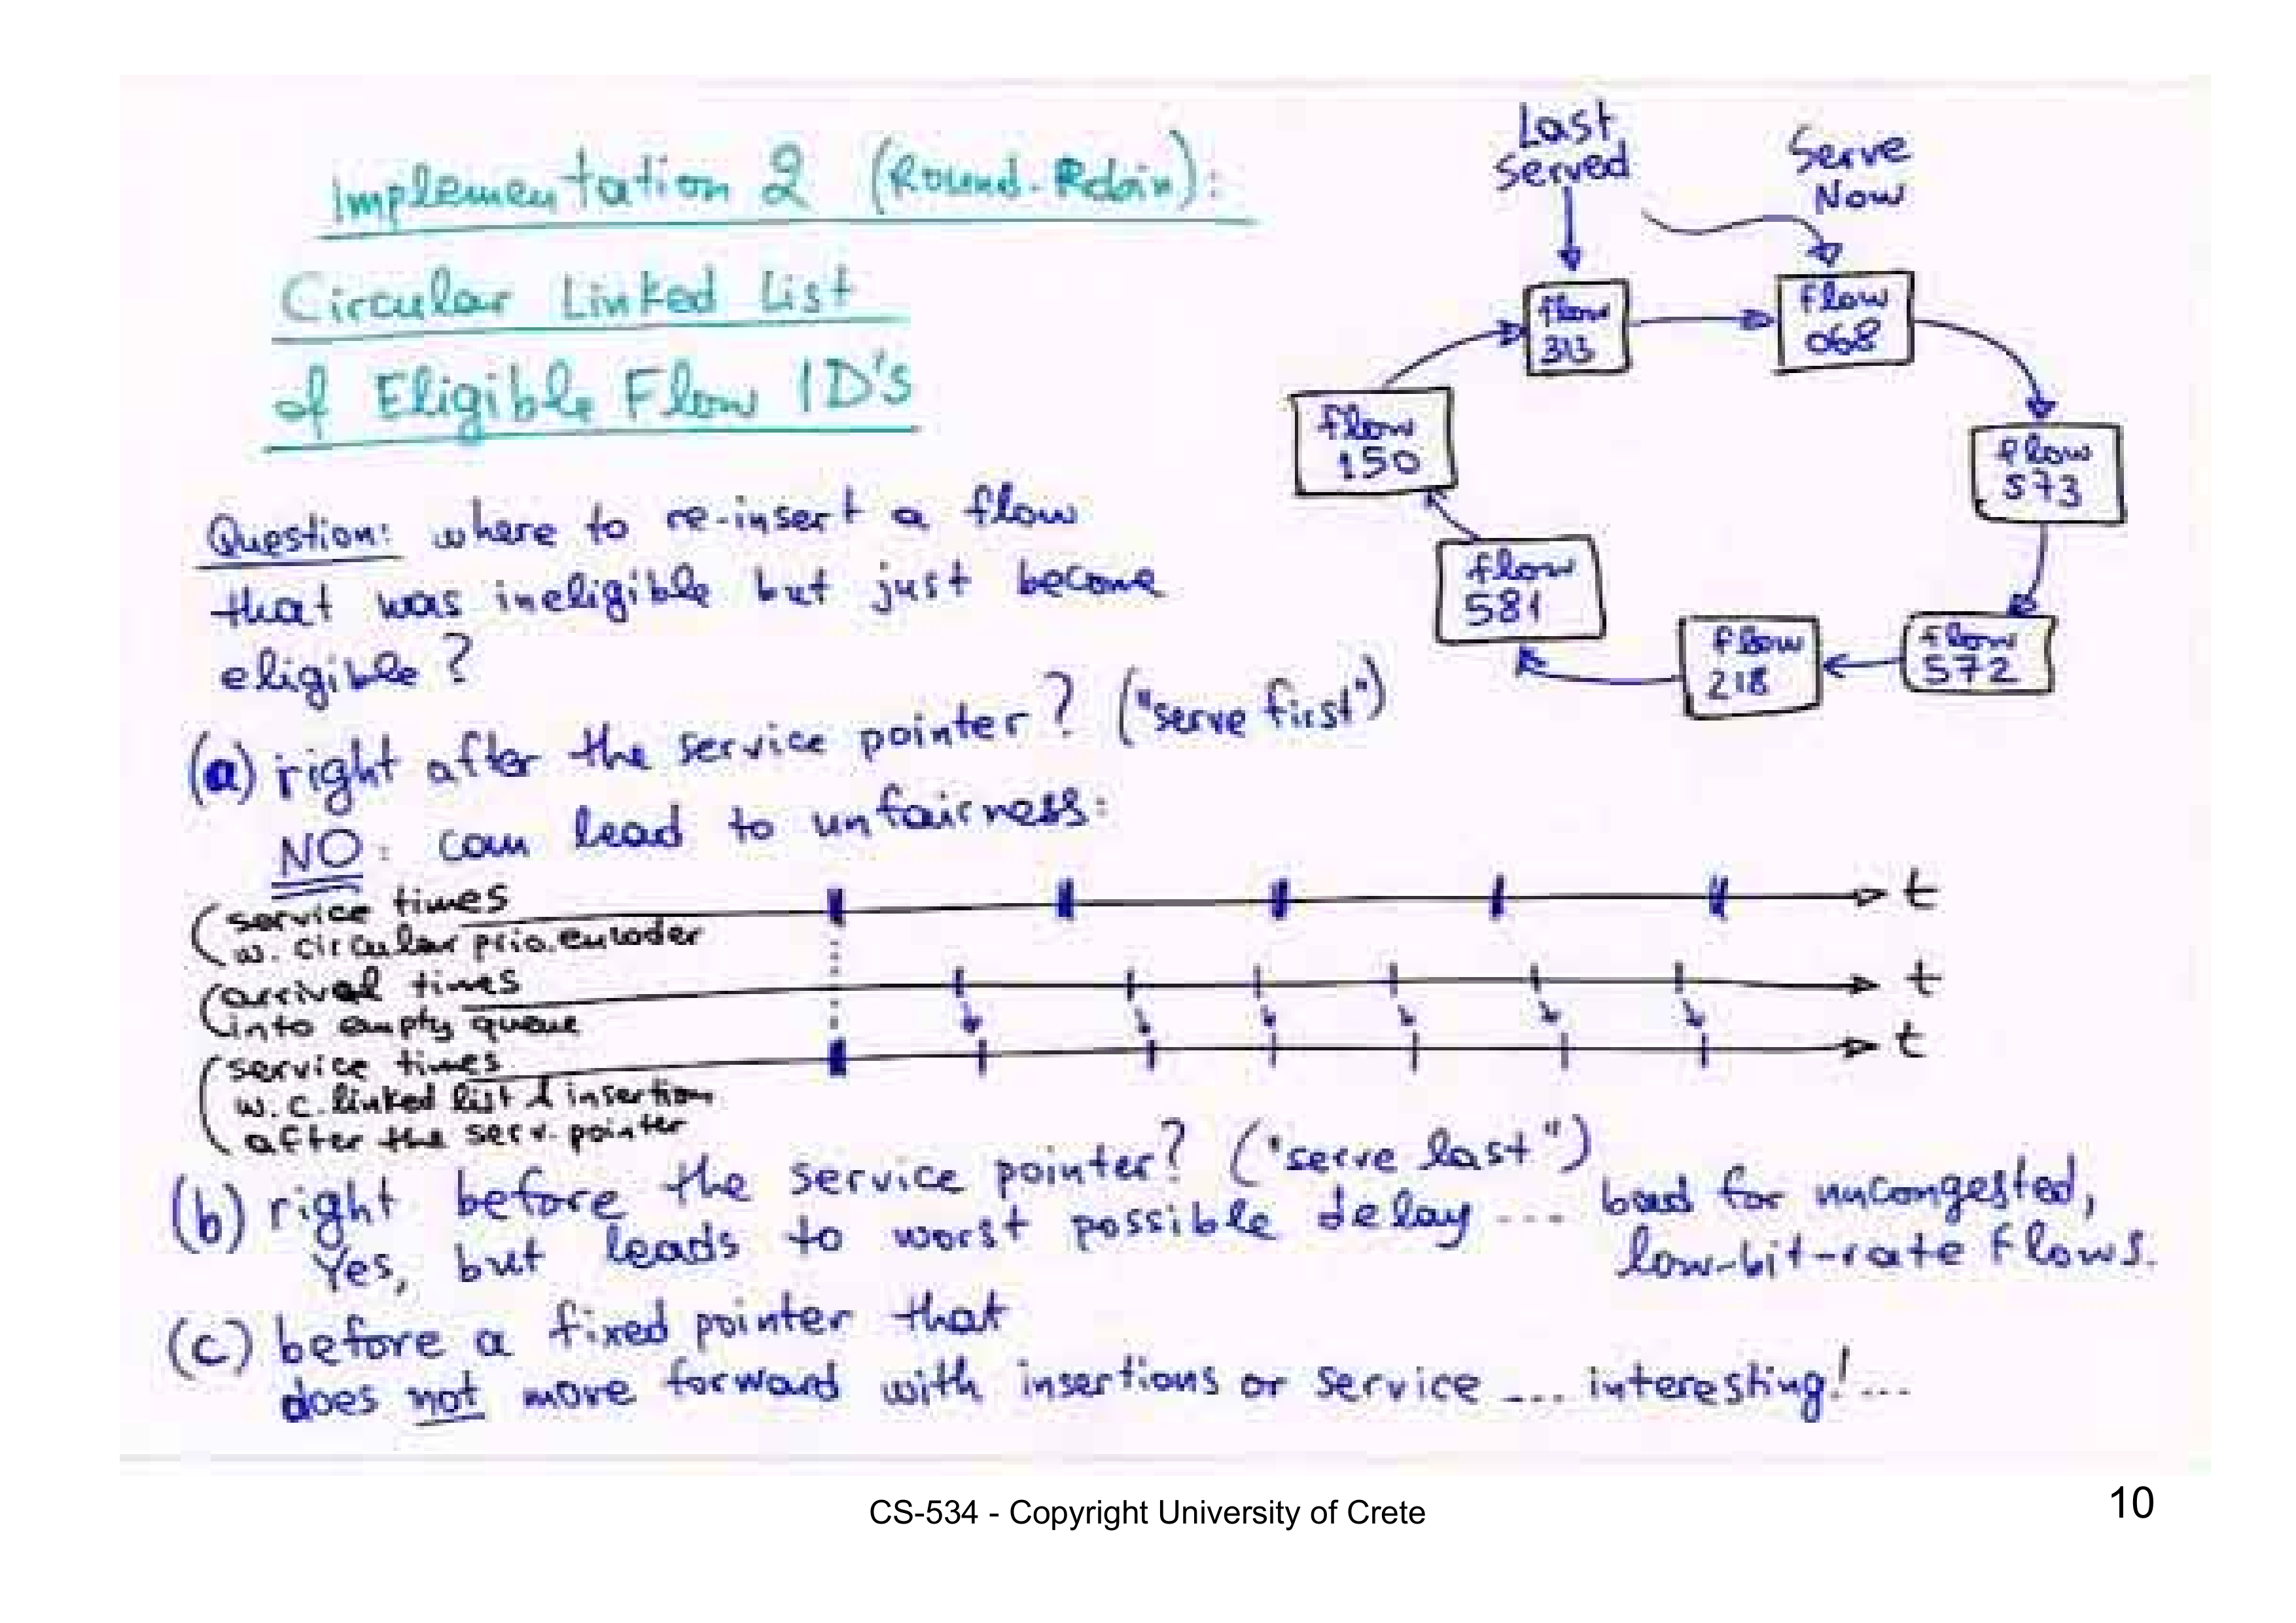 Implementation 2 (Round-Robin):
Circular Linked List
of Eligible Flow ID's
Last
Served
Serve
Now
flow
313
flow
068
flow
573
flow
572
flow
218
flow
581
flow
150
Question: where to re-insert a flow
that was ineligible but just become
eligible?
(a) right after the service pointer? ("serve first")
NO: can lead to unfairness:
(service times
w. circular prio. encoder
t
(arrival times
into empty queue
t
(service times
w. c. linked list & insertion
after the serv. pointer
t
(b) right before the service pointer? ("serve last")
Yes, but leads to worst possible delay ... bad for uncongested,
low-bit-rate flows.
(c) before a fixed pointer that
does not move forward with insertions or service ... interesting!...
CS-534 - Copyright University of Crete
10